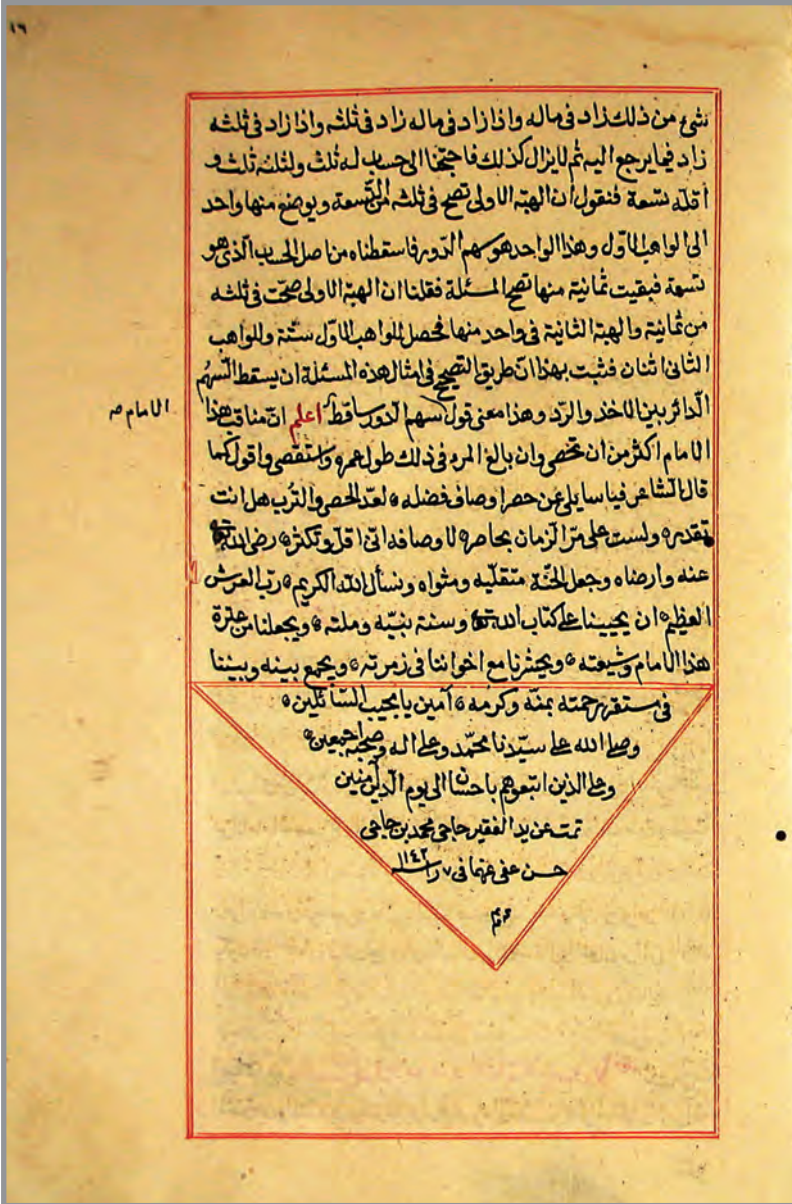 ١٦
شئ من ذلك زاد فى ماله واذا زاد فى ماله زاد فى ثلثه واذا زاد فى ثلثه
زاد فيما يرجع اليه ثم لايزال كذلك فاحتجنا الى حساب له ثلث ولثلثه ثلث و
أقله تسعة فنقول ان الهبة الاولى تصح فى ثلثه من التسعة ويوضع منها واحد
الى الواهب الاول وهذا الواحد هو سهم الدور فاسقطناه من اصل الحساب الذى هو
تسعة فبقيت ثمانية منها تصح المسئلة فقلنا ان الهبة الاولى صحت فى ثلثه
من ثمانية والهبة الثانية فى واحد منها فحصل للواهب الاول ستة وللواهب
الثانى اثنان فثبت بهذا ان طريق التصحيح فى امثال هذه المسئلة ان يسقط السهم
الدائر بين الاخذ والرد وهذا معنى قول سهم الدور ساقط اعلم ان مناقب هذا
الامام صه
الامام أكثر من ان تحصى وان بالغ المرء فى ذلك طول عمره واستقصى واقول كما
قال الشاعر فيا سايلى عن حصر اوصاف فضله لعد الحصى والترب هل انت
تقدره ولست على مر الزمان بحاصره لا وصافه انى اقل وتكثر رضى الله
عنه وارضاه وجعل الجنة متقلبه ومثواه ونسأل الله الكريم رب العرش
العظيم ان يحيينا على كتاب الله وسنة نبيه وملته ويجعلنا من عترة
هذا الامام وشيعته ويحشرنا مع اخواننا فى زمرته ويجمع بينه وبيننا
فى مستقر رحمته بمنه وكرمه آمين يا مجيب السائلين
وصلى الله على سيدنا محمد وعلى اله وصحبه اجمعين
وعلى الذين اتبعوهم باحسان الى يوم الدين آمين
تمت عن يد الفقير حاجى محمد بن حاجى
حسن عفى عنهما فى ٧ را سنه